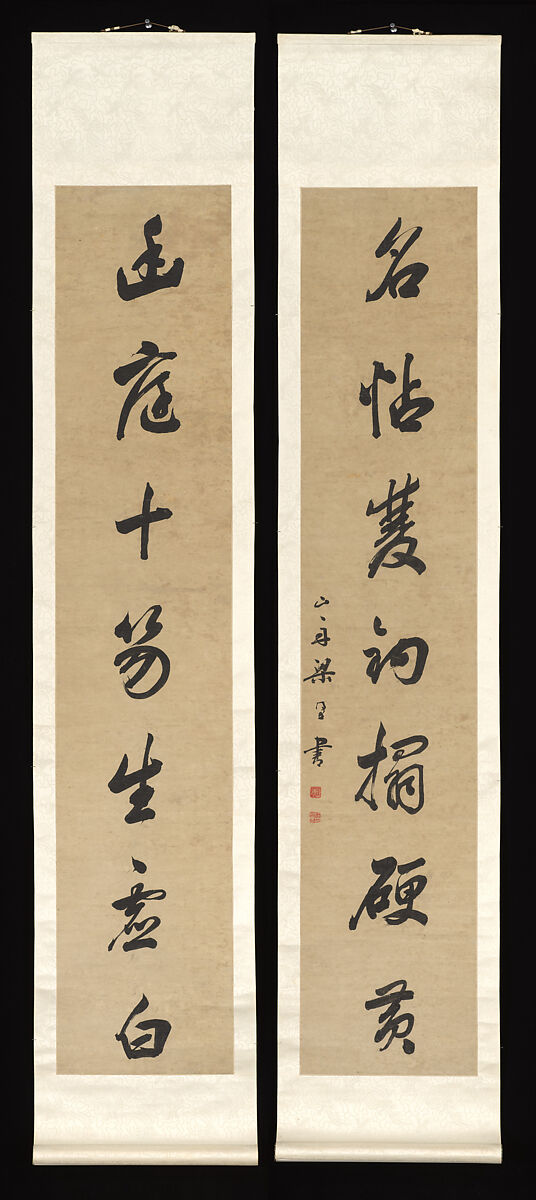 幽庭十笏生虛白
名帖雙鉤搨硬黃
山舟梁同書